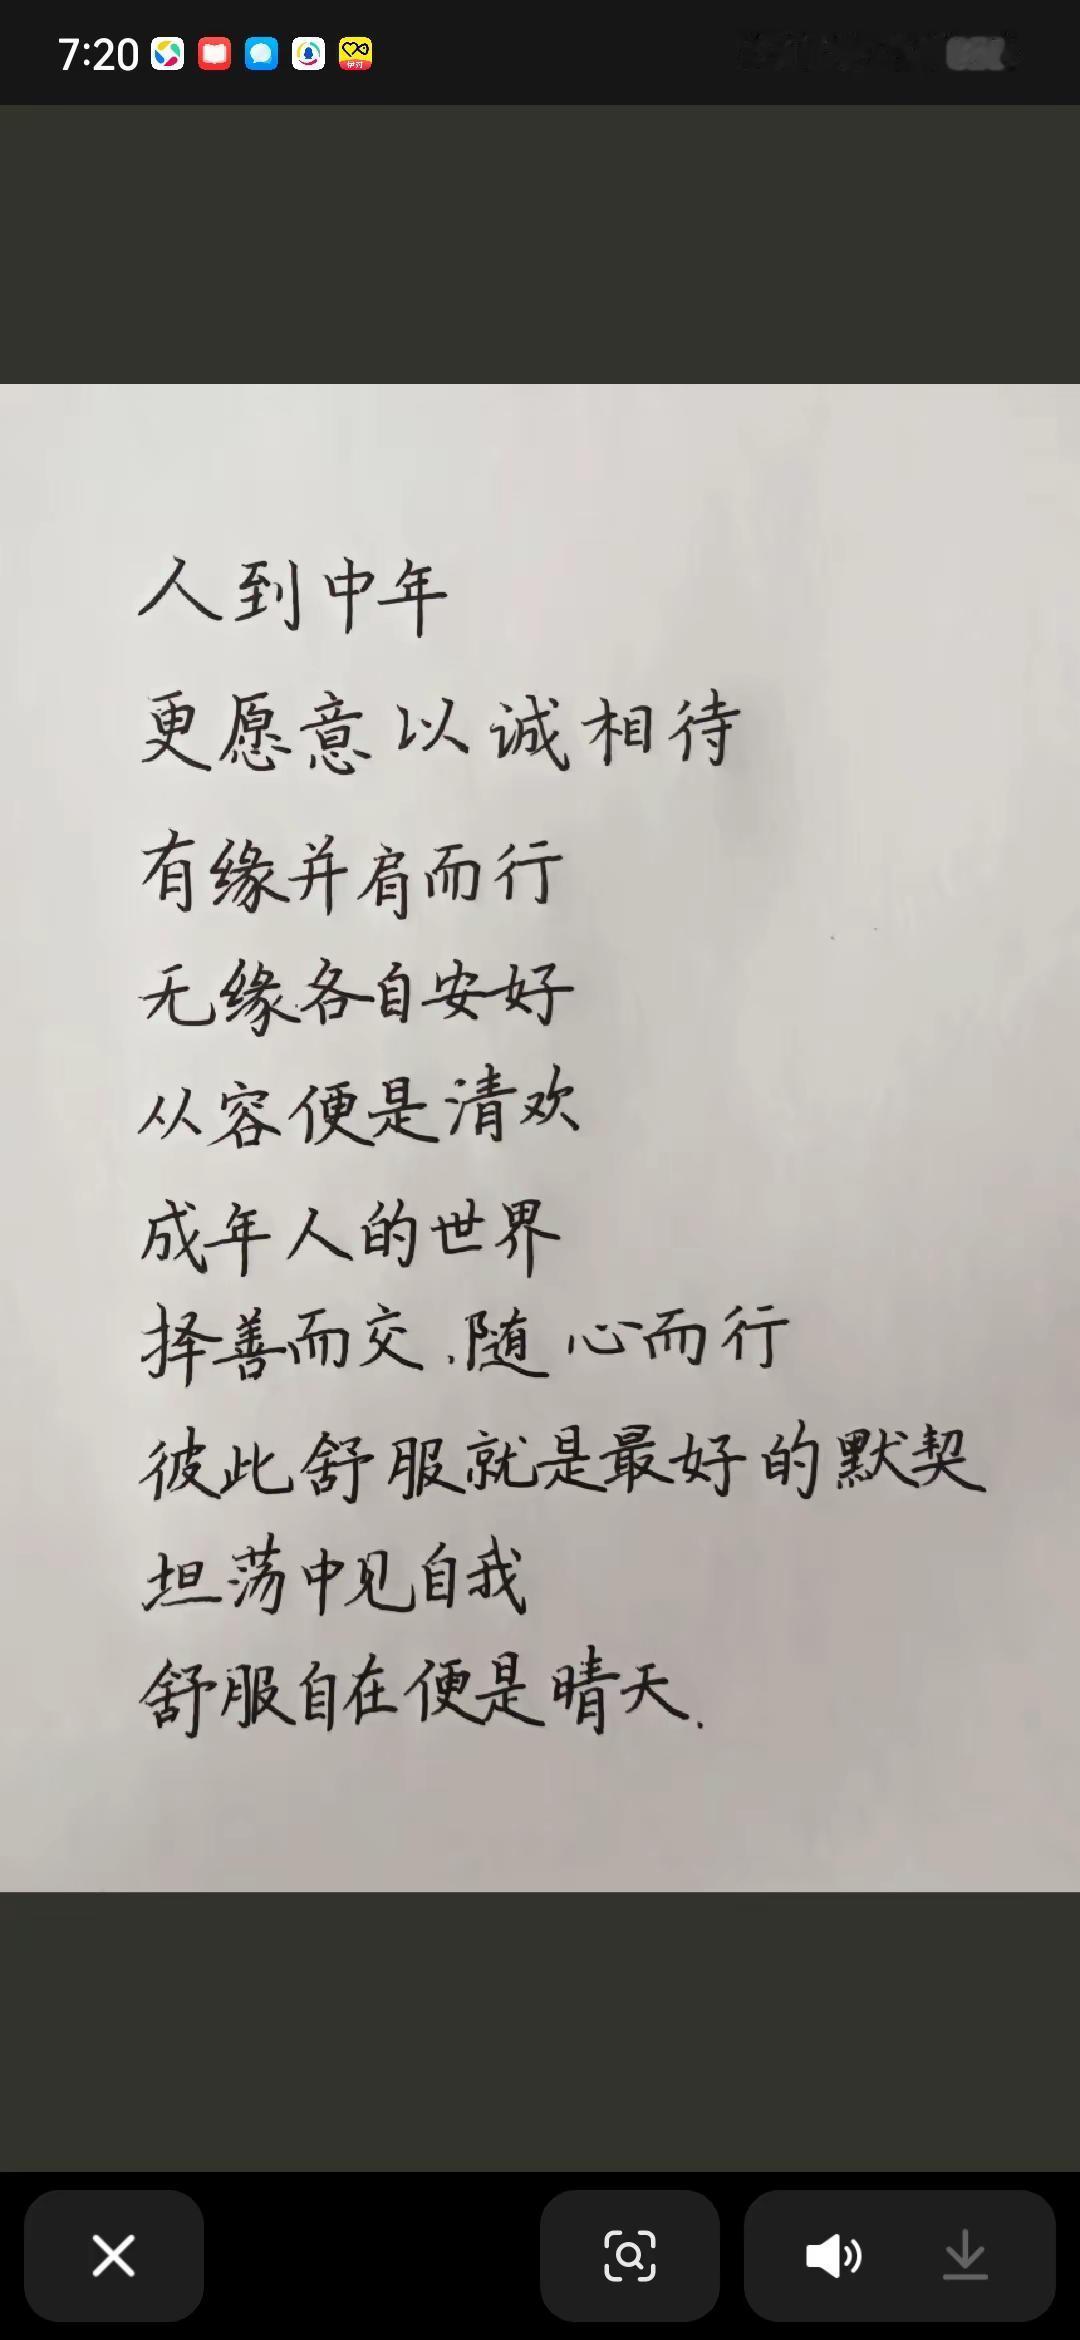 7:20
伊对
人到中年
更愿意以诚相待
有缘并肩而行
无缘各自安好
从容便是清欢
成年人的世界
择善而交.随心而行
彼此舒服就是最好的默契
坦荡中见自我
舒服自在便是晴天.